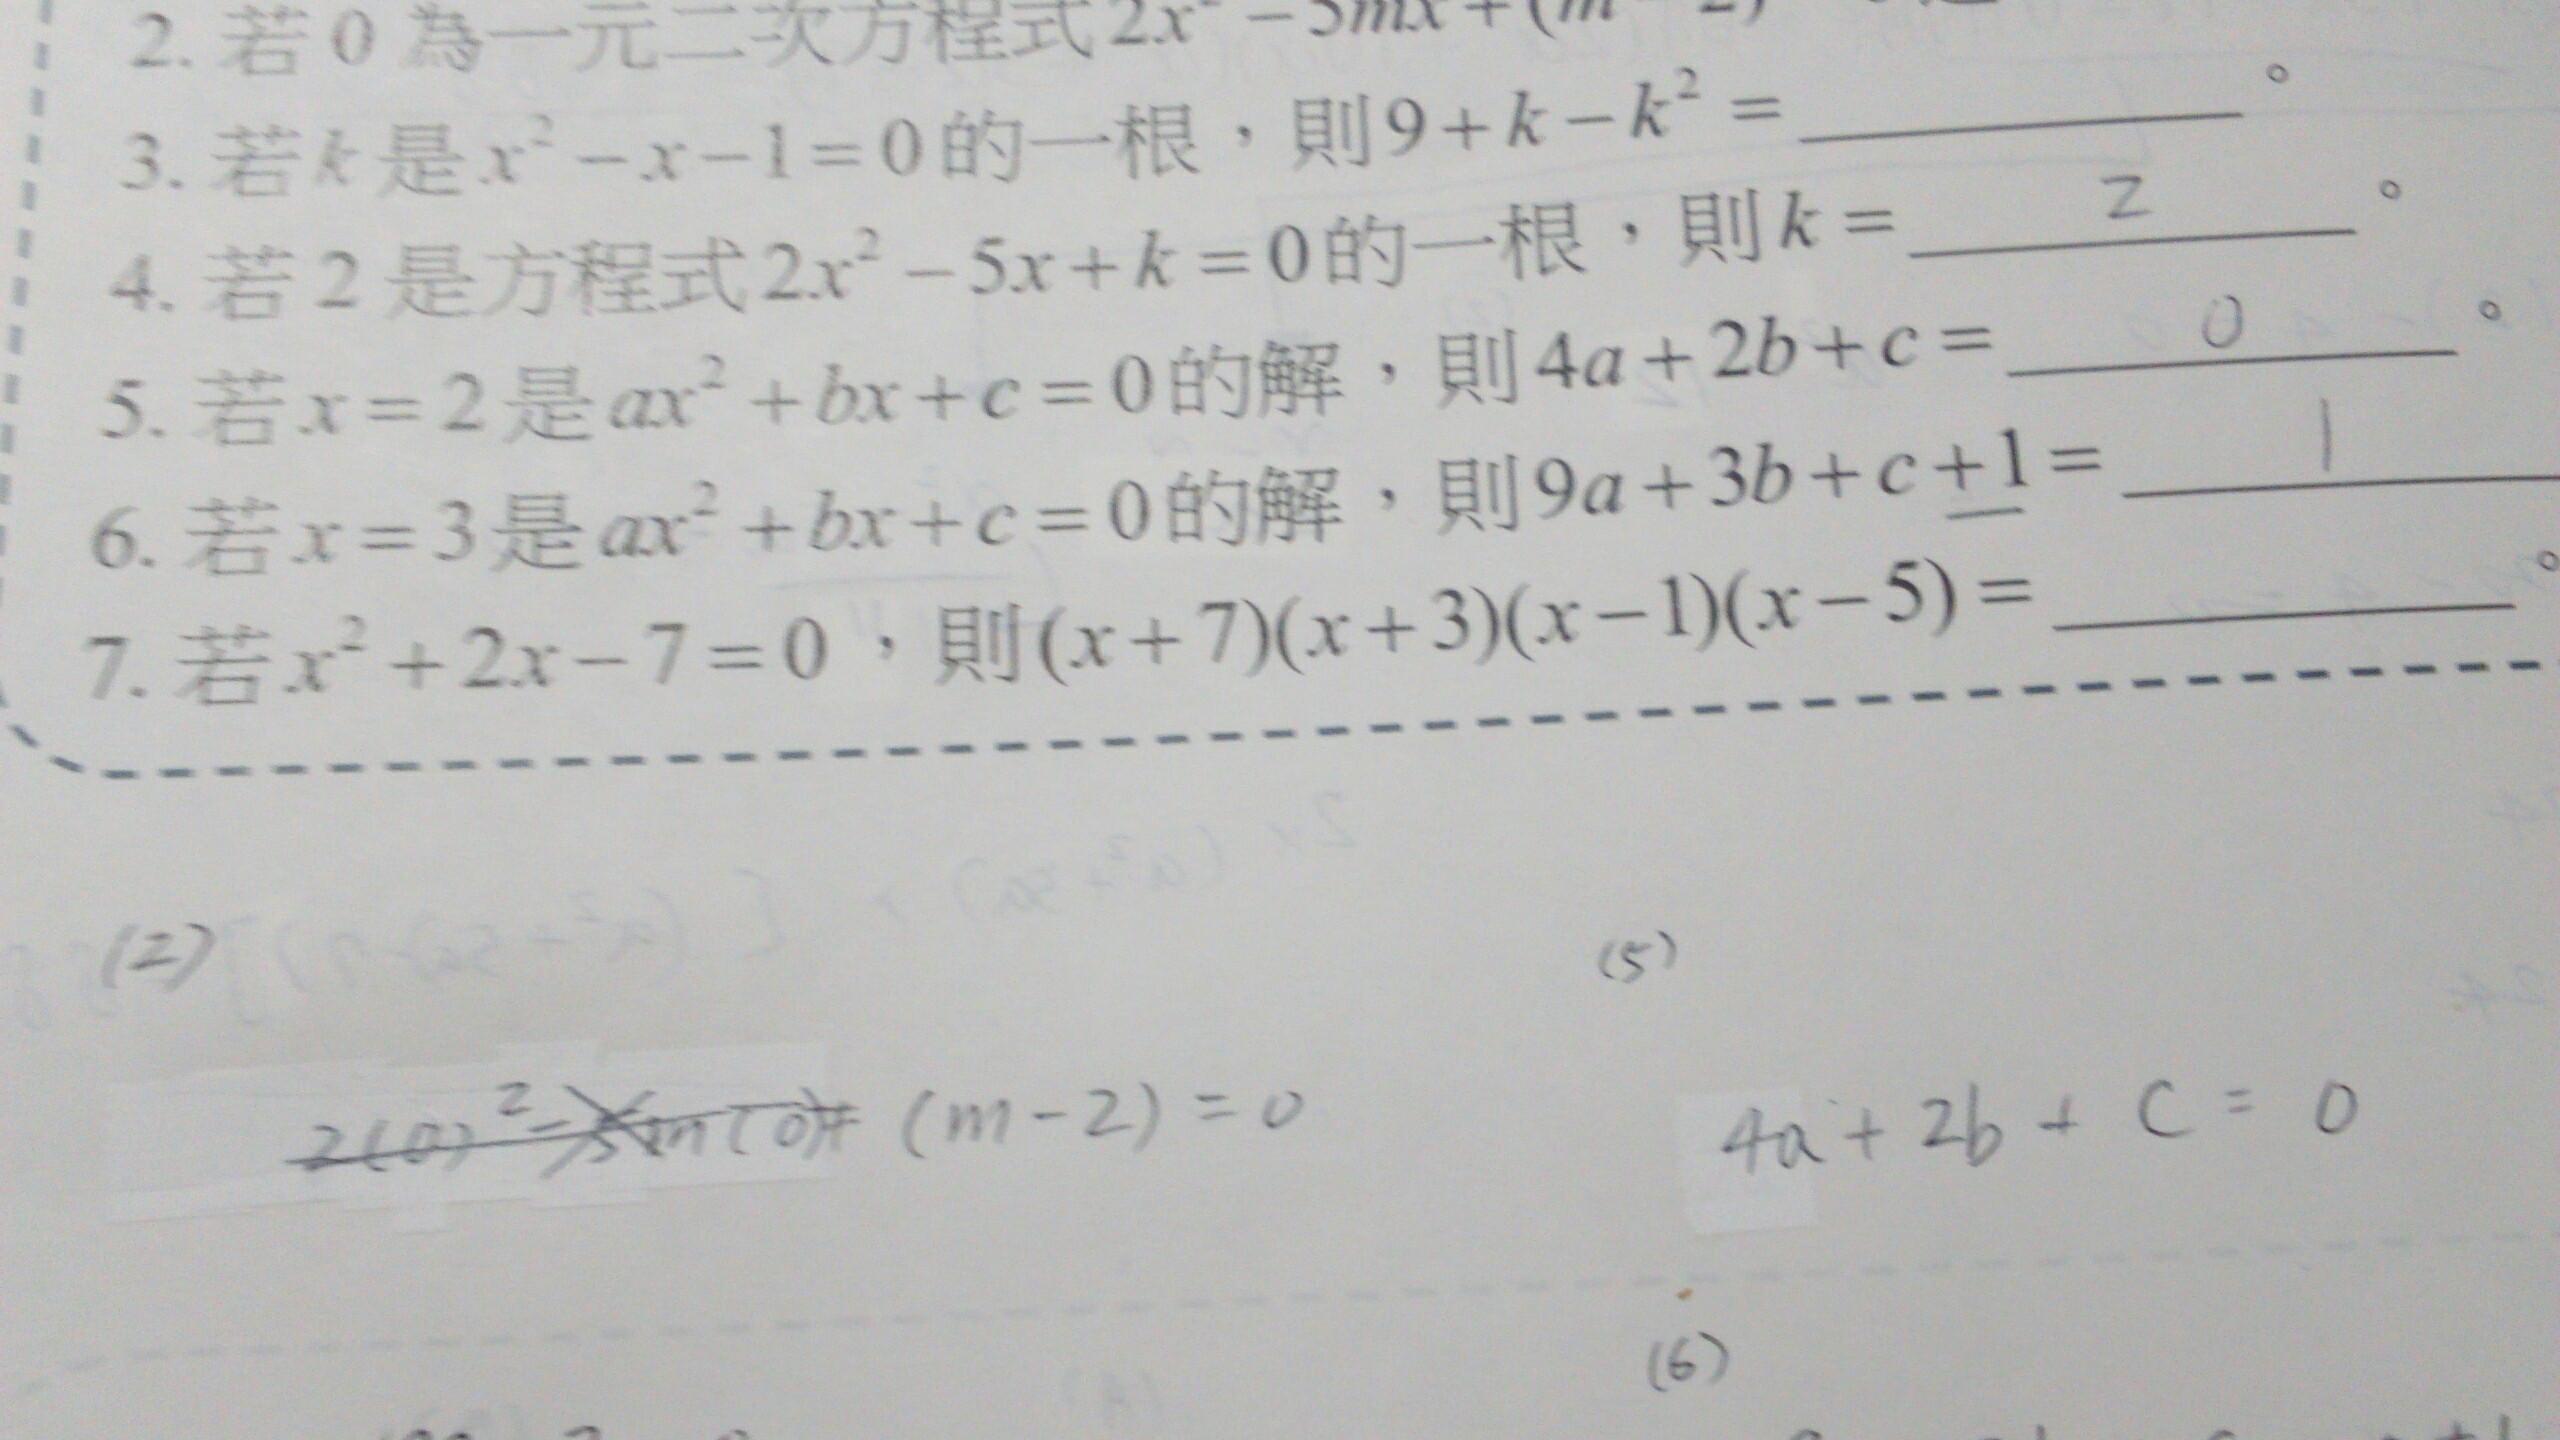 2. 若 0 為一元二次方程式 2x² − 5mx + (m − 2)
3. 若 k 是 x² − x − 1 = 0 的一根，則 9 + k − k² = ________。
4. 若 2 是方程式 2x² − 5x + k = 0 的一根，則 k = 2。
5. 若 x = 2 是 ax² + bx + c = 0 的解，則 4a + 2b + c = 0。
6. 若 x = 3 是 ax² + bx + c = 0 的解，則 9a + 3b + c + 1 = 1
7. 若 x² + 2x − 7 = 0，則 (x + 7)(x + 3)(x − 1)(x − 5) = ________。
(2)
2(0)² − 5m(0) + (m − 2) = 0
(5)
4a + 2b + c = 0
(6)